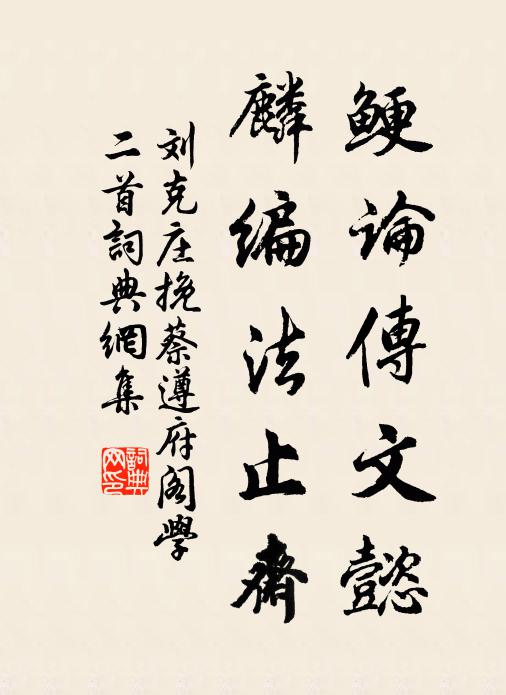 鯁論傳文懿
麟編法止齋
刘克庄挽蔡遵府阁學
二首詞典網集
詞典网印